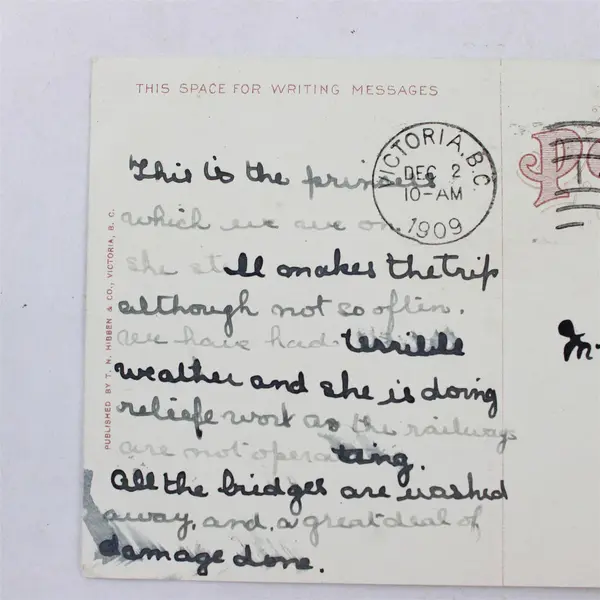 THIS SPACE FOR WRITING MESSAGES
VICTORIA, B.C.
DEC 2
10-AM
1909
This is the princess
which we are on.
she still makes the trip
although not so often.
we have had terrible
weather and she is doing
reliefe work as the railways
are not operating.
All the bridges are washed
away, and a great deal of
damage done.
PUBLISHED BY T. N. HIBBEN & CO., VICTORIA, B. C.
PO
M